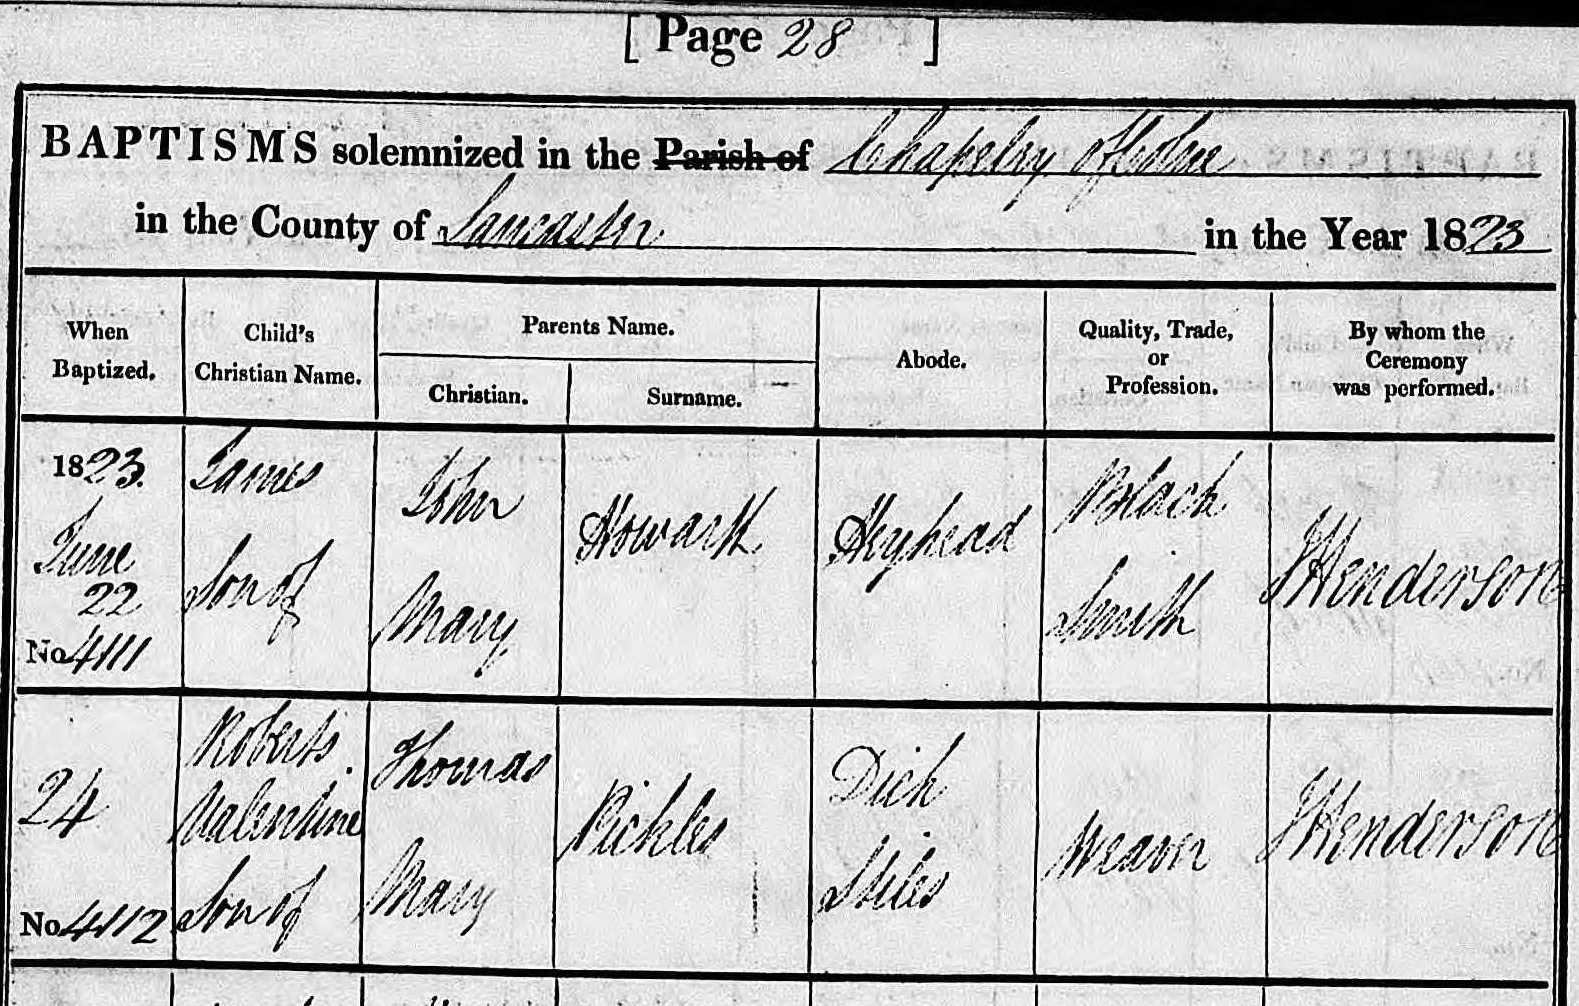 [ Page 28 ]
BAPTISMS solemnized in the Parish of Chapelry of Colne
in the County of Lancaster in the Year 1823
When Baptized.
Child's Christian Name.
Parents Name.
Christian.
Surname.
Abode.
Quality, Trade, or Profession.
By whom the Ceremony was performed.
1823.
June
22
No 4111
James
Son of
John
Mary
Howarth
Heyhead
Black
Smith
JHenderson
24
No 4112
Roberts
Valentine
Son of
Thomas
Mary
Pickles
Dick
Stiles
Weaver
JHenderson